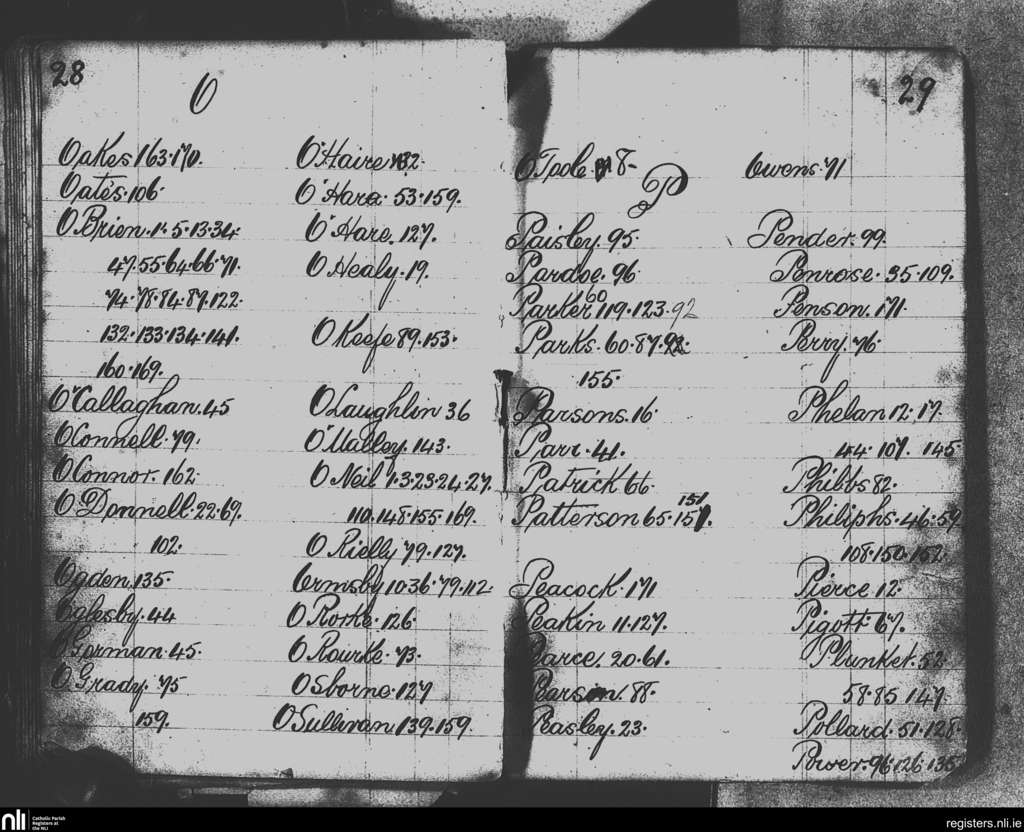 28
O
Oakes 163.170.
Oates 106
O'Brien. 1. 5. 13. 34.
47. 55. 64. 66. 71.
74. 78. 84. 87. 122.
132. 133. 134. 141.
160. 169.
O'Callaghan. 45
O'Connell. 79.
O'Connor. 162
O'Donnell. 22. 69.
102.
Ogden. 135.
Oglesby. 44
O'Gorman. 45.
O'Grady. 75
159.
O'Haire 132.
O'Hara. 53. 159.
O'Hare. 127.
O'Healy. 19.
O'Keefe 89. 153.
O'Laughlin 36
O'Malley. 143.
O'Neil 1. 3. 23. 24. 27.
110. 148. 155. 169.
O'Rielly 79. 127.
Ormsby 10. 36. 79. 112.
O'Rorke. 126.
O'Rourke. 73.
Osborne. 127
O'Sullivan 139. 159.
29
O'Toole. 8-
Owens. 71
P
Paisley. 95.
Pardoe. 96
Parker 60 119. 123. 92
Parks. 60. 87. 92.
155.
Parsons. 16.
Parr. 41.
Patrick 66.
Patterson 65. 151
Peacock. 171
Peakin 11. 127.
Pearce. 20. 61.
Pearson. 88.
Peasley. 23.
Pender. 99.
Penrose. 35. 109.
Penson. 171.
Perry. 76.
Phelan 12. 17.
44. 107. 145
Phibbs 82.
Philiphs. 46. 59
108. 150. 162.
Pierce 12.
Pigott. 67.
Plunket. 52.
58. 85. 147
Pollard. 51. 128.
Power. 96. 126. 135.
nli
Catholic Parish
Registers at
the NLI
registers.nli.ie